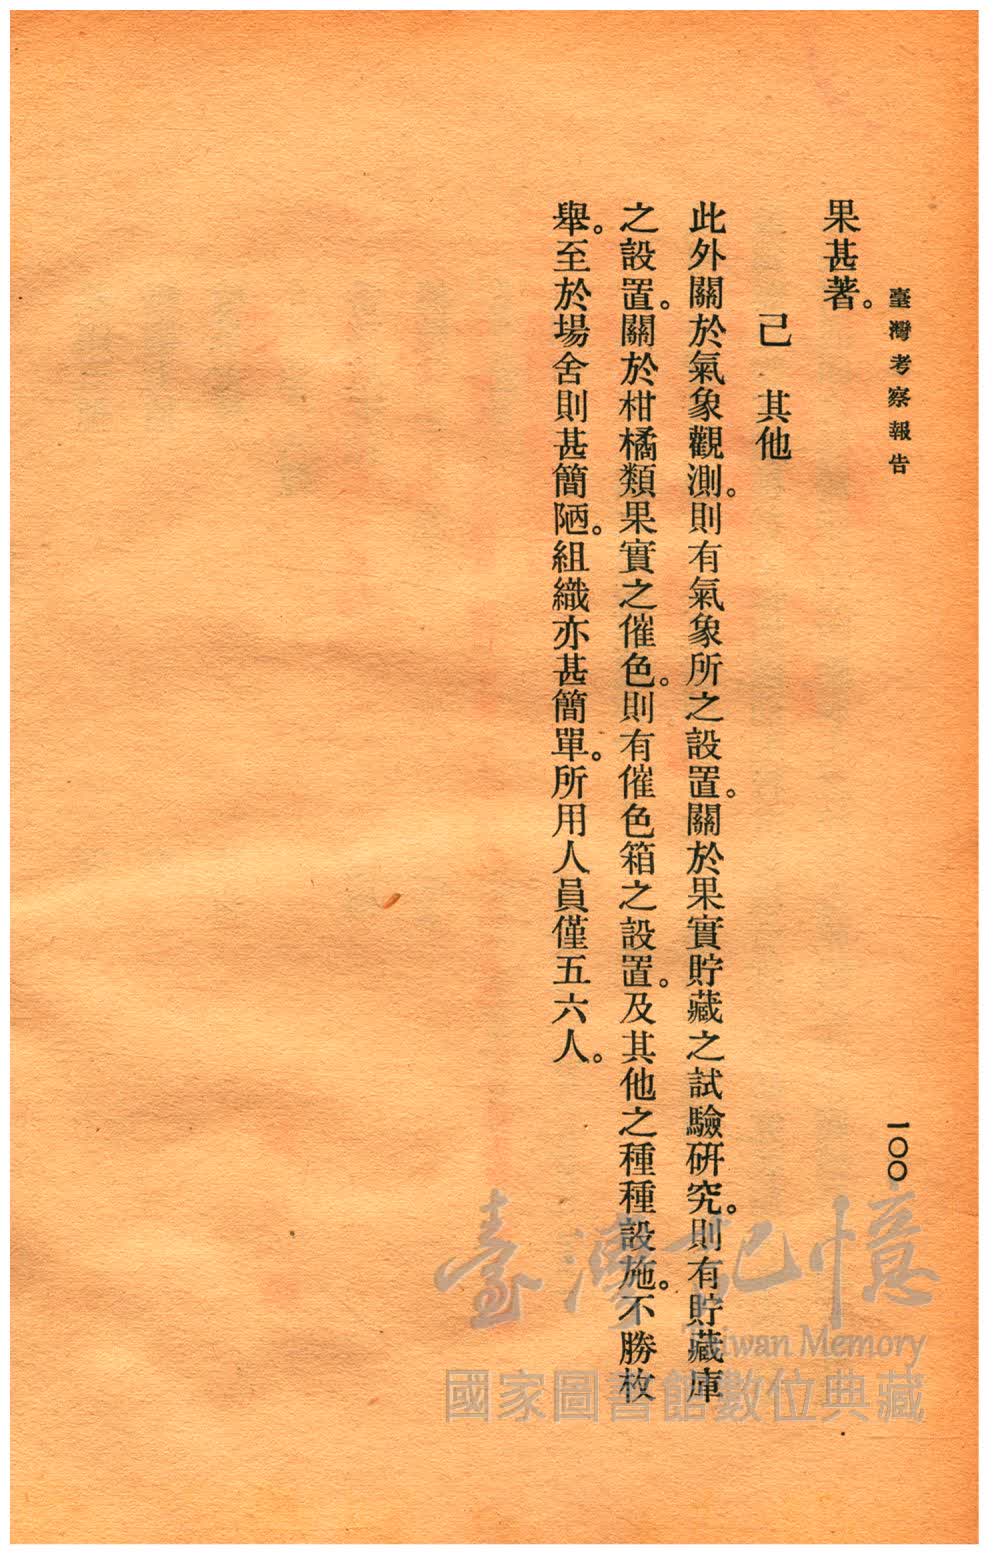 臺灣考察報告
一〇〇
果甚著。
己　其他
此外關於氣象觀測。則有氣象所之設置。關於果實貯藏之試驗研究。則有貯藏庫
之設置。關於柑橘類果實之催色。則有催色箱之設置。及其他之種種設施。不勝枚
舉。至於場舍則甚簡陋。組織亦甚簡單。所用人員僅五六人。
臺灣記憶
Taiwan Memory
國家圖書館數位典藏